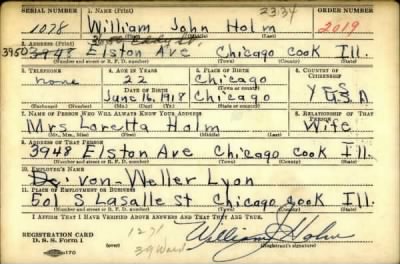 SERIAL NUMBER 1. NAME (Print) 2334 ORDER NUMBER
1078 William John Holm 2019
2. ADDRESS (Print)
3950 3948 Elston Ave Chicago Cook Ill.
(Number and street or R. F. D. number) (Town) (County) (State)
3. TELEPHONE 4. AGE IN YEARS 5. PLACE OF BIRTH 6. COUNTRY OF CITIZENSHIP
none 22 Chicago YES
DATE OF BIRTH (Town or county)
June 16, 1918 Chicago U.S.A
7. NAME OF PERSON WHO WILL ALWAYS KNOW YOUR ADDRESS 8. RELATIONSHIP OF THAT PERSON
Mrs Loretta Holm Wife
(Mr., Mrs., Miss) (First) (Middle) (Last)
9. ADDRESS OF THAT PERSON
3948 Elston Ave Chicago Cook Ill.
(Number and street or R. F. D. number) (Town) (County) (State)
10. EMPLOYER'S NAME
von-Weller Lyon
11. PLACE OF EMPLOYMENT OR BUSINESS
501 S Lasalle st Chicago Cook Ill.
(Number and street or R. F. D. number) (Town) (County) (State)
I AFFIRM THAT I HAVE VERIFIED ABOVE ANSWERS AND THAT THEY ARE TRUE.
REGISTRATION CARD
D. S. S. Form 1
39 Ward
William J Holm